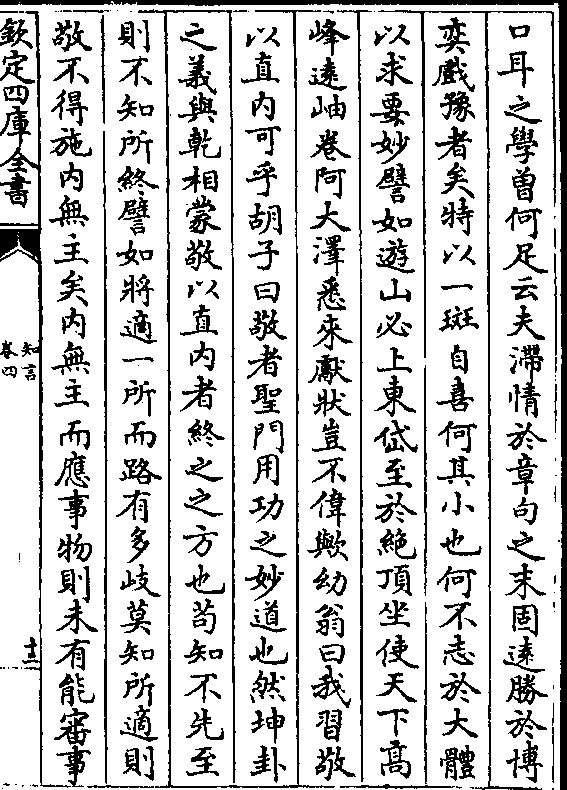 口耳之學曽何足云夫滯情於章句之末固逺勝於博
奕戲豫者矣特以一斑自喜何其小也何不志於大體
以求要妙譬如遊山必上東岱至於絶頂坐使天下髙
峰逺岫卷阿大澤悉來獻狀豈不偉歟幼翁曰我習敬
以直内可乎胡子曰敬者聖門用功之妙道也然坤卦
之義與乾相蒙敬以直内者終之之方也茍知不先至
則不知所終譬如將適一所而路有多歧莫知所適則
敬不得施内無主矣内無主而應事物則未有能審事
欽定四庫全書
知言
卷四
十三